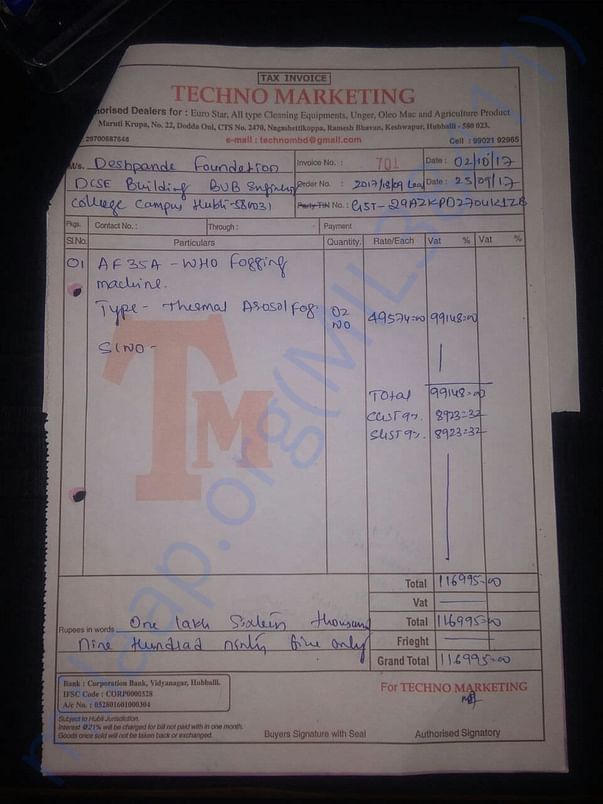 TAX INVOICE
TECHNO MARKETING
horised Dealers for : Euro Star, All type Cleaning Equipments, Unger, Oleo Mac and Agriculture Product
Maruti Krupa, No. 22, Dodda Oni, CTS No. 2470, Nagashettikoppa, Ramesh Bhavan, Keshwapur, Hubballi - 580 023.
29700687648 e-mail : technombd@gmail.com Cell : 99021 92965
M/s. Deshpande Foundation Invoice No. : 701 Date : 02/10/17
DCSE Building BVB Order No. : 2017/18/09 Date : 25/09/17
College Campus Hubli-580031 Party TIN No. : GST-
Pkgs. Contact No. : Through : Payment
Sl.No. Particulars Quantity. Rate/Each Vat % Vat %
01 AF35A - WHO Fogging
machine.
Type - Thermal Arosol Fog. 02 NO 49574=00 99148=00
Sl NO -
TM
Total 99148=00
CGST 9%. 8923=32
SGST 9%. 8923=32
Total 116995=00
Vat
Rupees in words One lakh Sixteen thousand Total 116995=00
Nine Hundrad ninty five only Frieght
Grand Total 116995=00
Bank : Corporation Bank, Vidyanagar, Hubballi.
IFSC Code : CORP0000528
A/c No. : 052801601000304
For TECHNO MARKETING
Subject to Hubli Jurisdiction.
Interest @21% will be charged for bill not paid with in one month.
Goods once sold will not be taken back or exchanged.
Buyers Signature with Seal Authorised Signatory